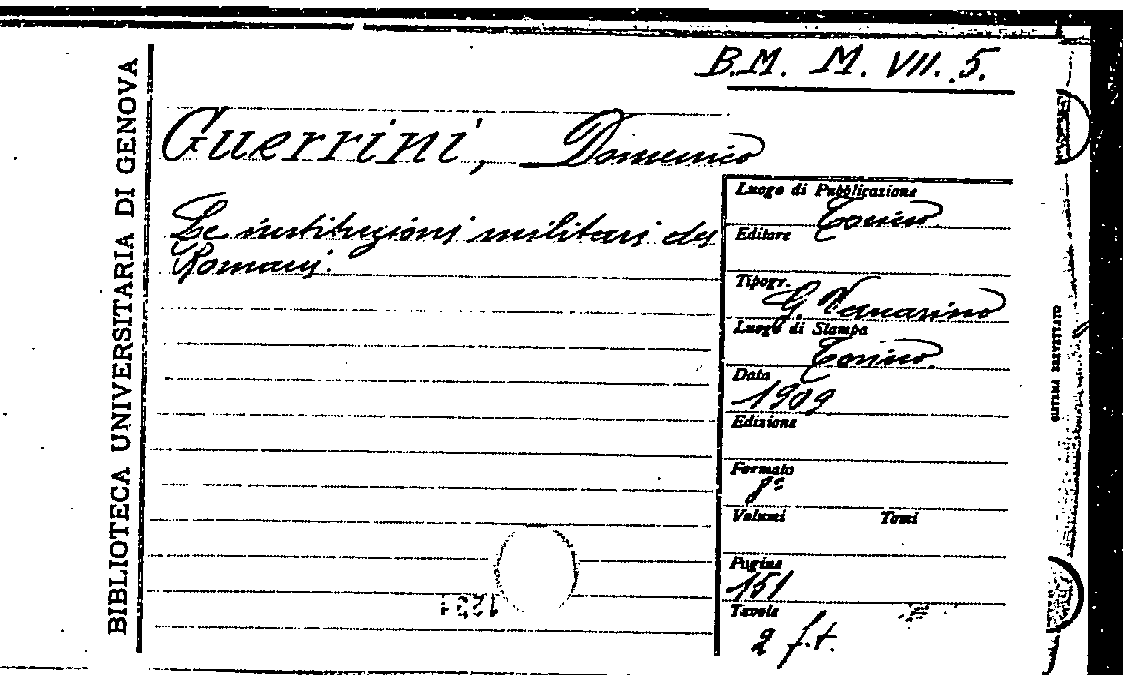 B.M. M. VII. 5.
BIBLIOTECA UNIVERSITARIA DI GENOVA
Guerrini, Domenico
Le instituzioni militari dei
Romani.
Luogo di Pubblicazione
Torino
Editore
Tipogr.
G.
Luogo di Stampa
Torino
Data
1909
Edizione
Formato
8º
Volumi Tomi
Pagine
151
Tavole
2 f.t.
BREVETTATO